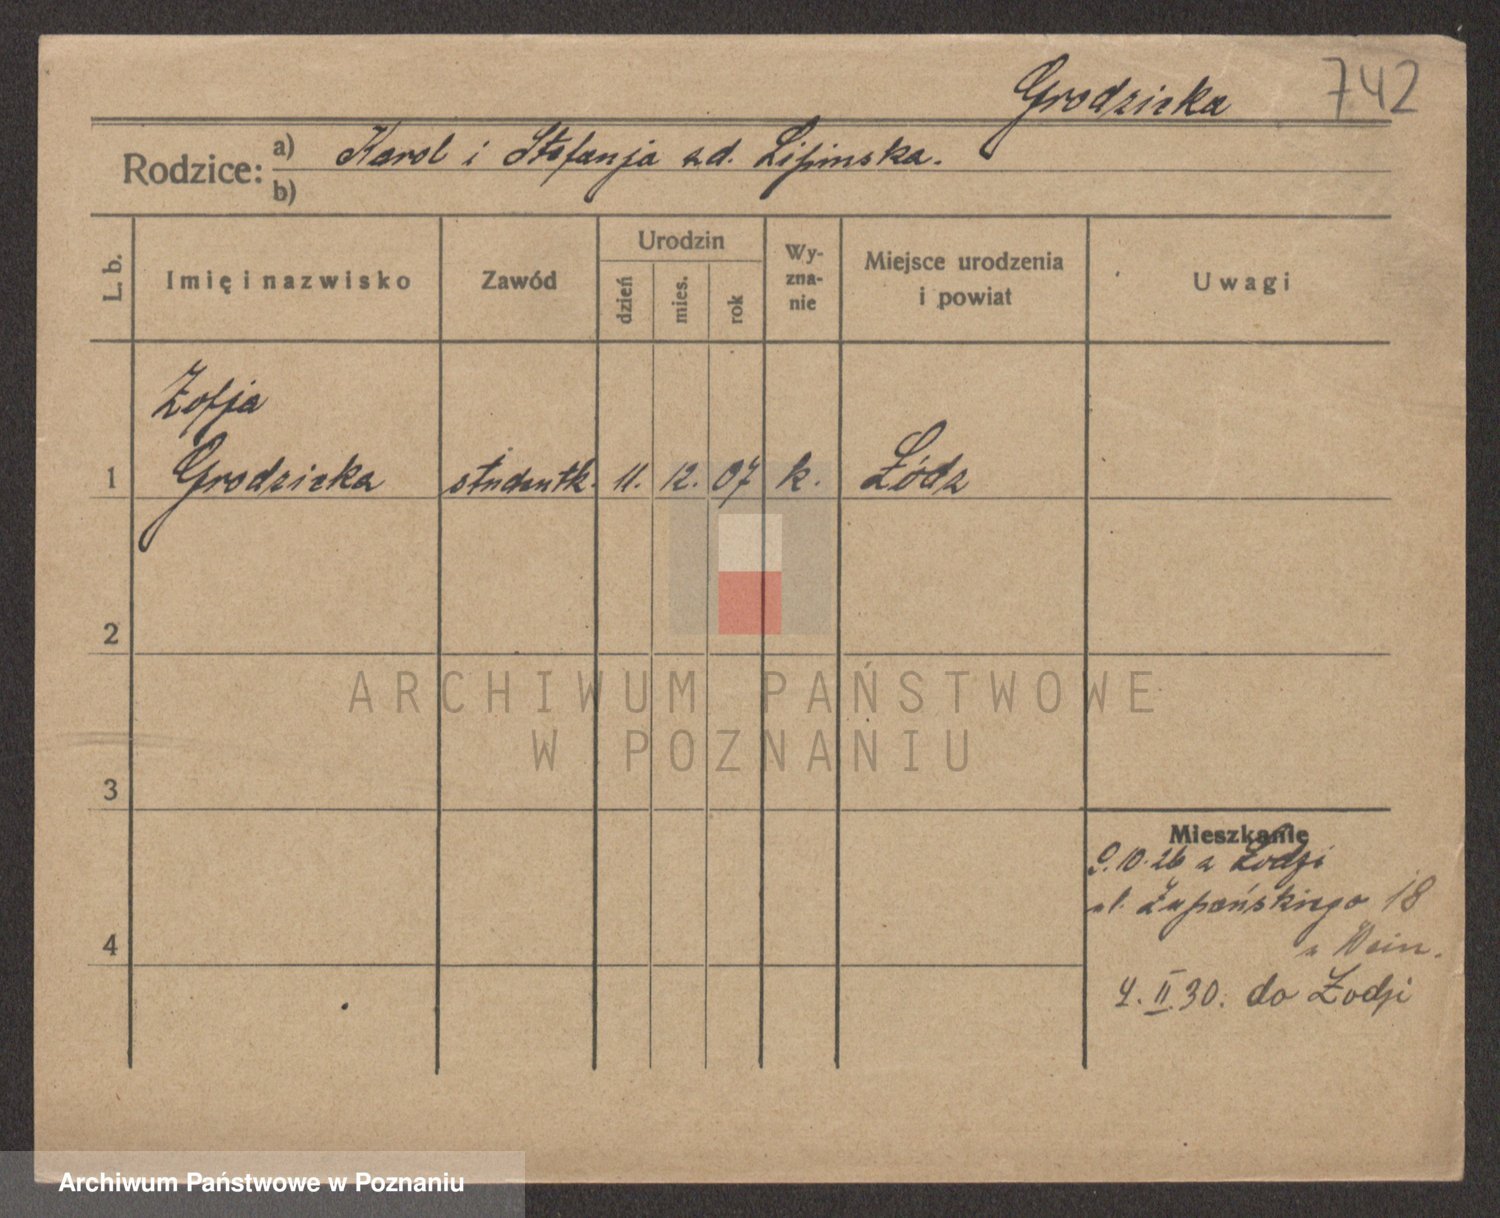 Grodzicka 742
Rodzice: a) Karol i Stefanja zd. Lipinska.
b)
L. b.
Imię i nazwisko
Zawód
Urodzin
dzień
mies.
rok
Wy-
zna-
nie
Miejsce urodzenia
i powiat
Uwagi
Zofja
1 Grodzicka studentk. 11. 12. 07 k. Łódz
2
ARCHIWUM PAŃSTWOWE
W POZNANIU
3
Mieszkanie
9.10.26 z Łodzi
ul. Żupańskiego 18
4
4.II.30. do Łodzi
Archiwum Państwowe w Poznaniu